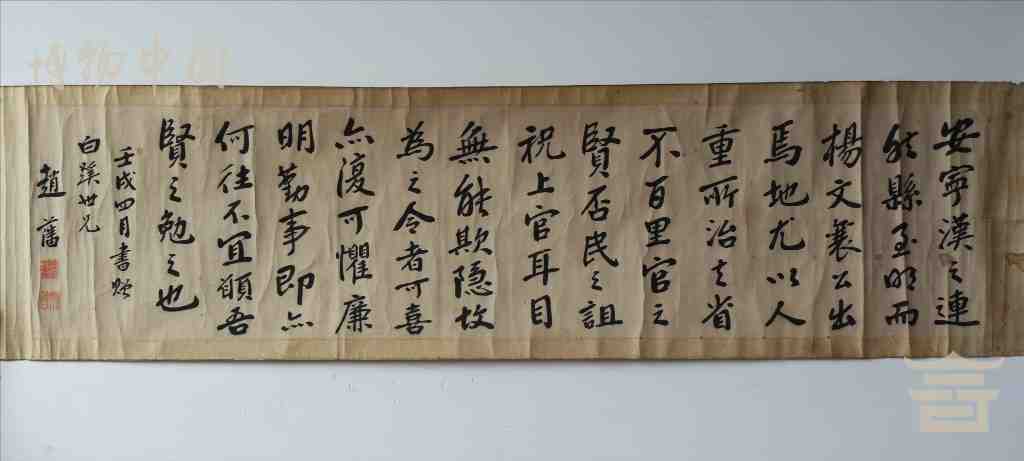 安寧漢之連
然縣至明而
楊文襄公出
焉地尤以人
重所治去省
不百里官之
賢否民之詛
祝上官耳目
無能欺隐故
為之令者可喜
亦復可懼廉
明勤事即亦
何往不宜願吾
賢之勉之也
壬戌四月書贈
白蹊世兄
趙藩
博物中國